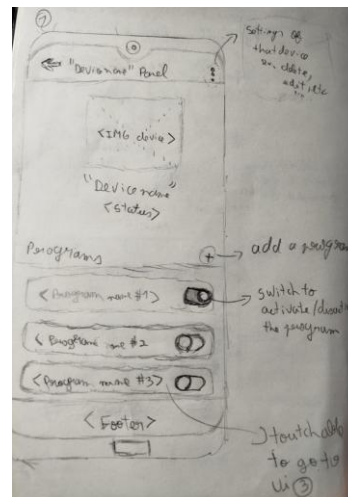 ②
"Devicename" Panel
settings of
that device
ex. delete,
edit, etc
<IMG device>
"Devicename"
<status>
Programs
+ → add a program
<Program name #1>
switch to
activate/
the program
<Program me #2>
<Program name #3>
<Footer>
touchable
to go to
ui ③